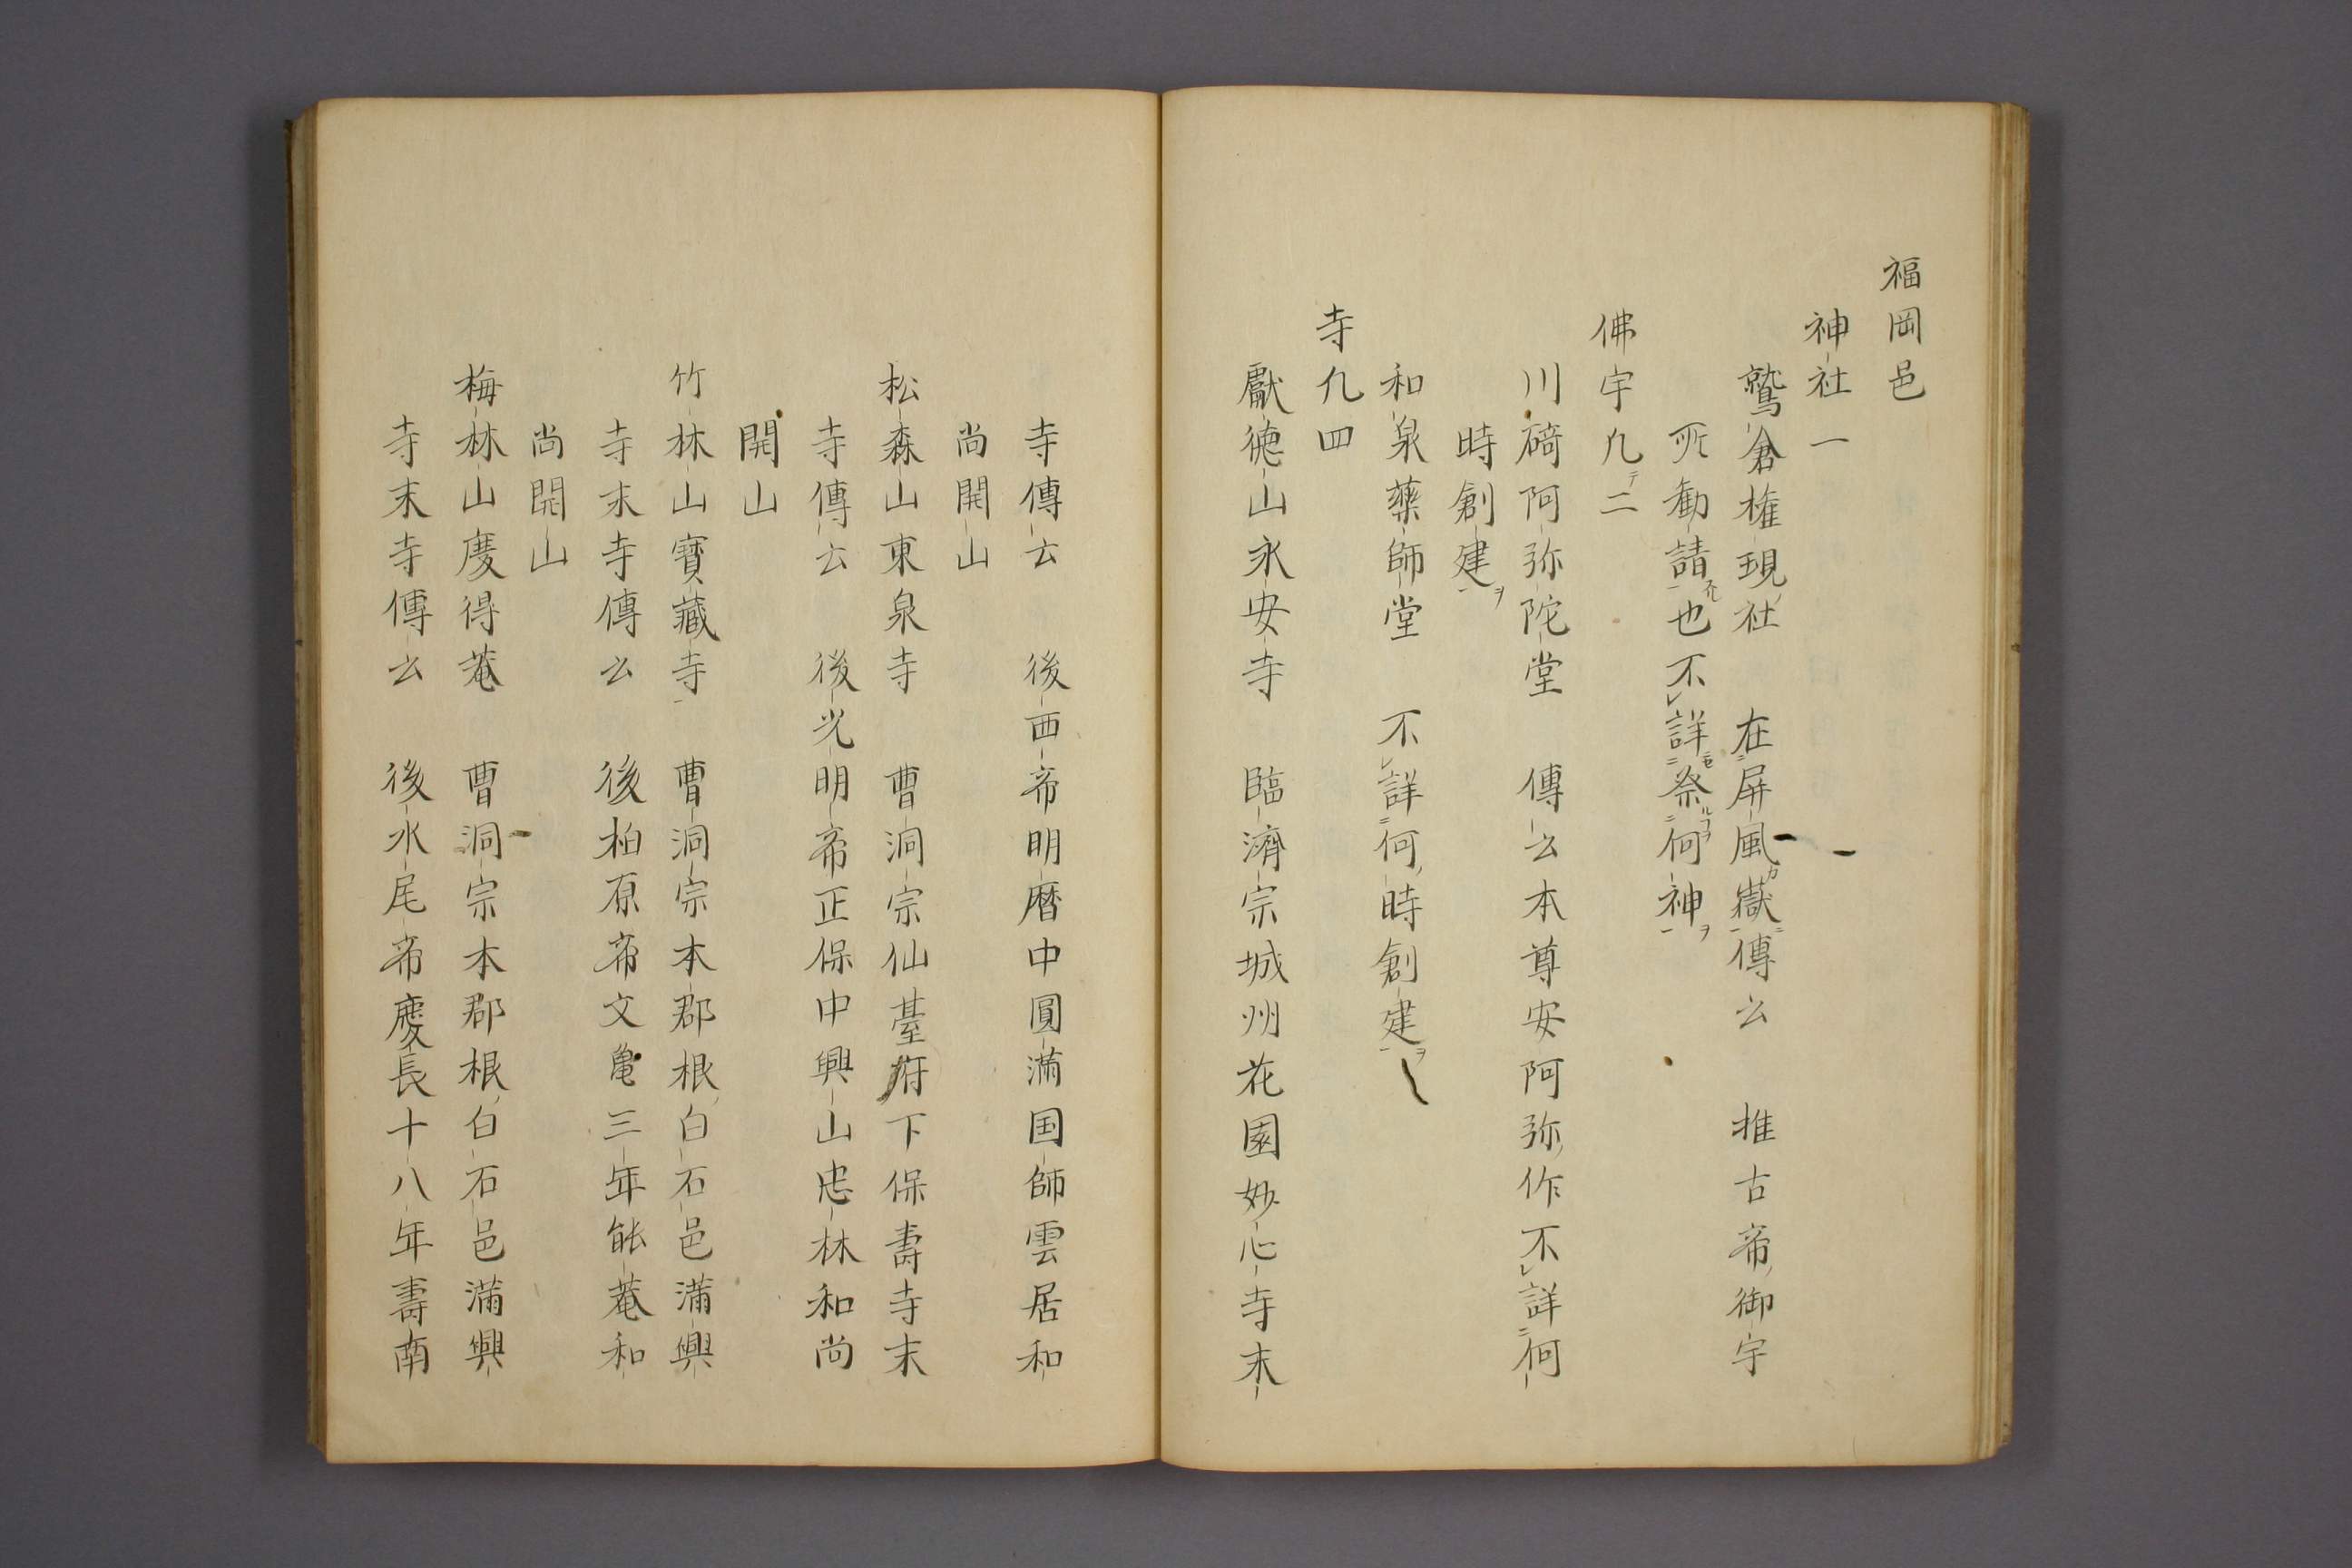 福岡邑
神社一
鷲倉権現ノ社　在二屏風ガ嶽ニ一傳云　推古帝ノ御宇
所二勸請スル一也不レ詳ニセ二祭ルコヲ二何神ヲ一
佛宇凡テ二
川﨑阿弥陀堂　傳云本尊安阿弥ノ作不レ詳二何
時創建ヲ一
和泉藥師堂　不レ詳二何ノ時創建ヲ一
寺凡四
獻德山永安寺　臨濟宗城州花園妙心寺末
寺傳云　後西帝明暦中圓滿国師雲居和
尚開山
松森山東泉寺　曹洞宗仙臺府下保壽寺末
寺傳云　後光明帝正保中興山忠林和尚
開山
竹林山寶藏寺　曹洞宗本郡根ノ白石邑滿興
寺末寺傳云　後柏原帝文亀三年能菴和
尚開山
梅林山慶得菴　曹洞宗本郡根ノ白石邑滿興
寺末寺傳云　後水尾帝慶長十八年壽南